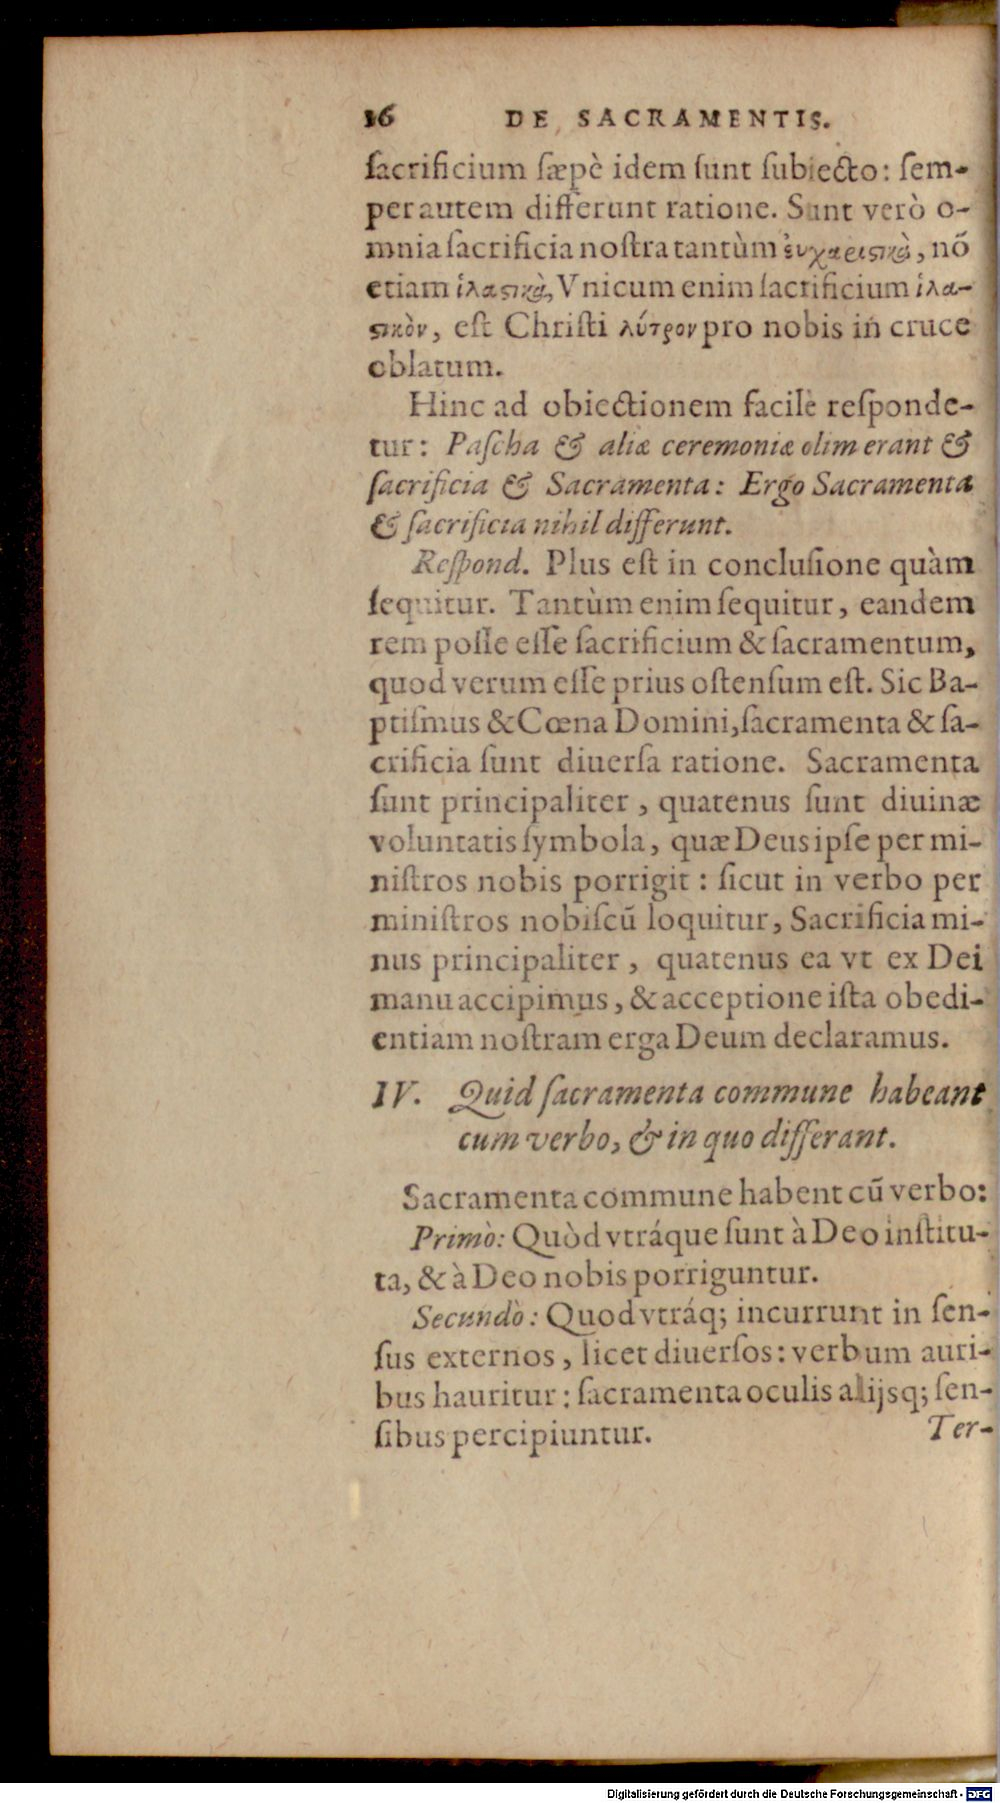 16 DE SACRAMENTIS.
sacrificium sæpè idem sunt subiecto: sem-
per autem differunt ratione. Sunt verò o-
mnia sacrificia nostra tantùm ἐυχαριϛικὰ, nõ
etiam ἱλαϛικὰ, Vnicum enim sacrificium ἱλα-
ϛικὸν, est Christi λύτρον pro nobis in cruce
oblatum.
Hinc ad obiectionem facile responde-
tur: Pascha & aliæ ceremoniæ olim erant &
sacrificia & Sacramenta: Ergo Sacramenta
& sacrificia nihil differunt.
Respond. Plus est in conclusione quàm
sequitur. Tantùm enim sequitur, eandem
rem posse esse sacrificium & sacramentum,
quod verum esse prius ostensum est. Sic Ba-
ptismus & Cœna Domini, sacramenta & sa-
crificia sunt diuersa ratione. Sacramenta
sunt principaliter, quatenus sunt diuinæ
voluntatis symbola, quæ Deus ipse per mi-
nistros nobis porrigit: sicut in verbo per
ministros nobiscũ loquitur, Sacrificia mi-
nus principaliter, quatenus ea vt ex Dei
manu accipimus, & acceptione ista obedi-
entiam nostram erga Deum declaramus.
IV. Quid sacramenta commune habeant
cum verbo, & in quo differant.
Sacramenta commune habent cũ verbo:
Primò: Quòd vtráque sunt à Deo institu-
ta, & à Deo nobis porriguntur.
Secundò: Quod vtráq; incurrunt in sen-
sus externos, licet diuersos: verbum auri-
bus hauritur: sacramenta oculis alijsq; sen-
sibus percipiuntur.
Ter-
Digitalisierung gefördert durch die Deutsche Forschungsgemeinschaft - DFG